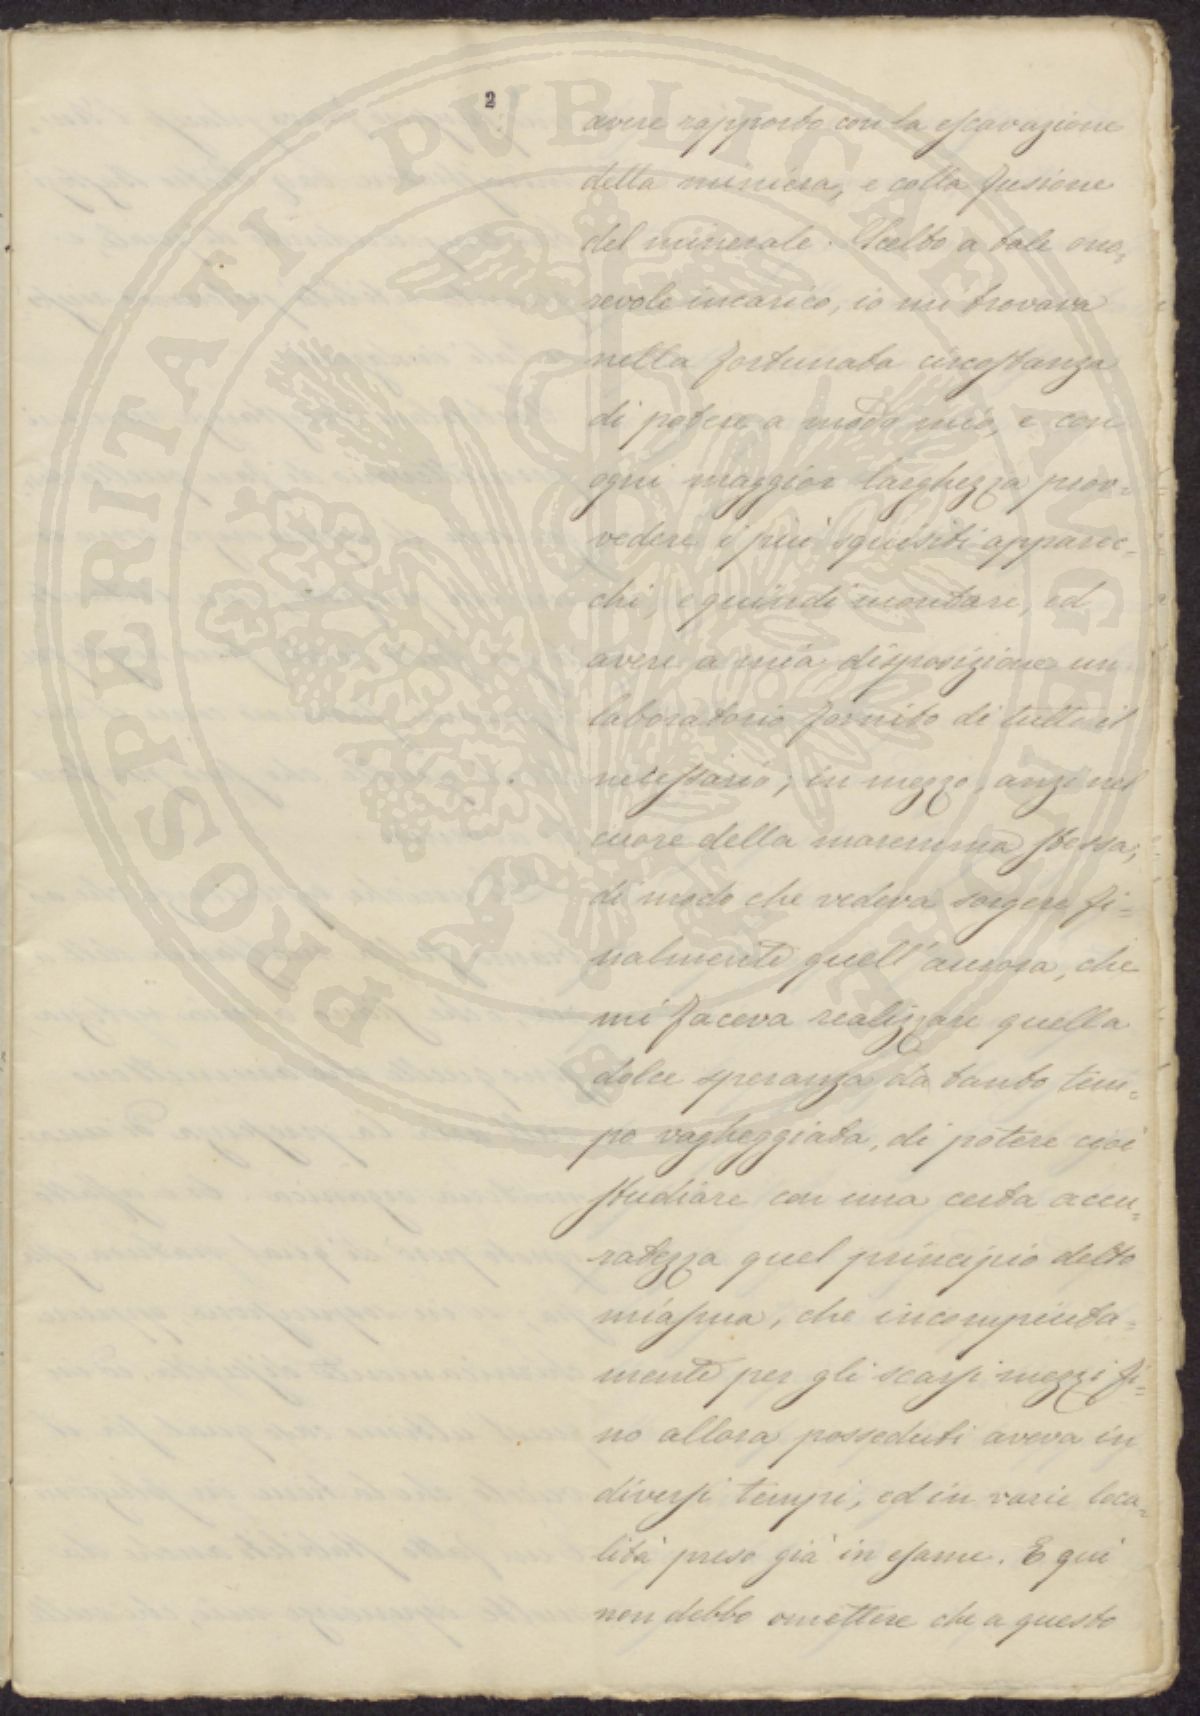 2
avere rapporto con la escavazione
della miniera, e colla fusione
del minerale. Scelto a tale ono=
revole incarico, io mi trovava
nella fortunata circostanza
di potere a modo mio, e con
ogni maggior larghezza prov=
vedere i più squisiti apparec=
chi, e quindi montare, ed
avere a mia disposizione un
laboratorio fornito di tutto il
necessario; in mezzo, anzi nel
cuore della maremma stessa;
di modo che vedeva sorgere fi=
nalmente quell'aurora, che
mi faceva realizzare quella
dolce speranza da tanto tem=
po vagheggiata, di potere cioè
studiare con una certa accu=
ratezza quel principio detto
miasma, che incompiuta=
mente per gli scarsi mezzi fi=
no allora posseduti aveva in
diversi tempi, ed in varie loca=
lità preso già in esame. E qui
non debbo omettere che a questo
PROSPERITATI PVBLICAE AVGENDAE